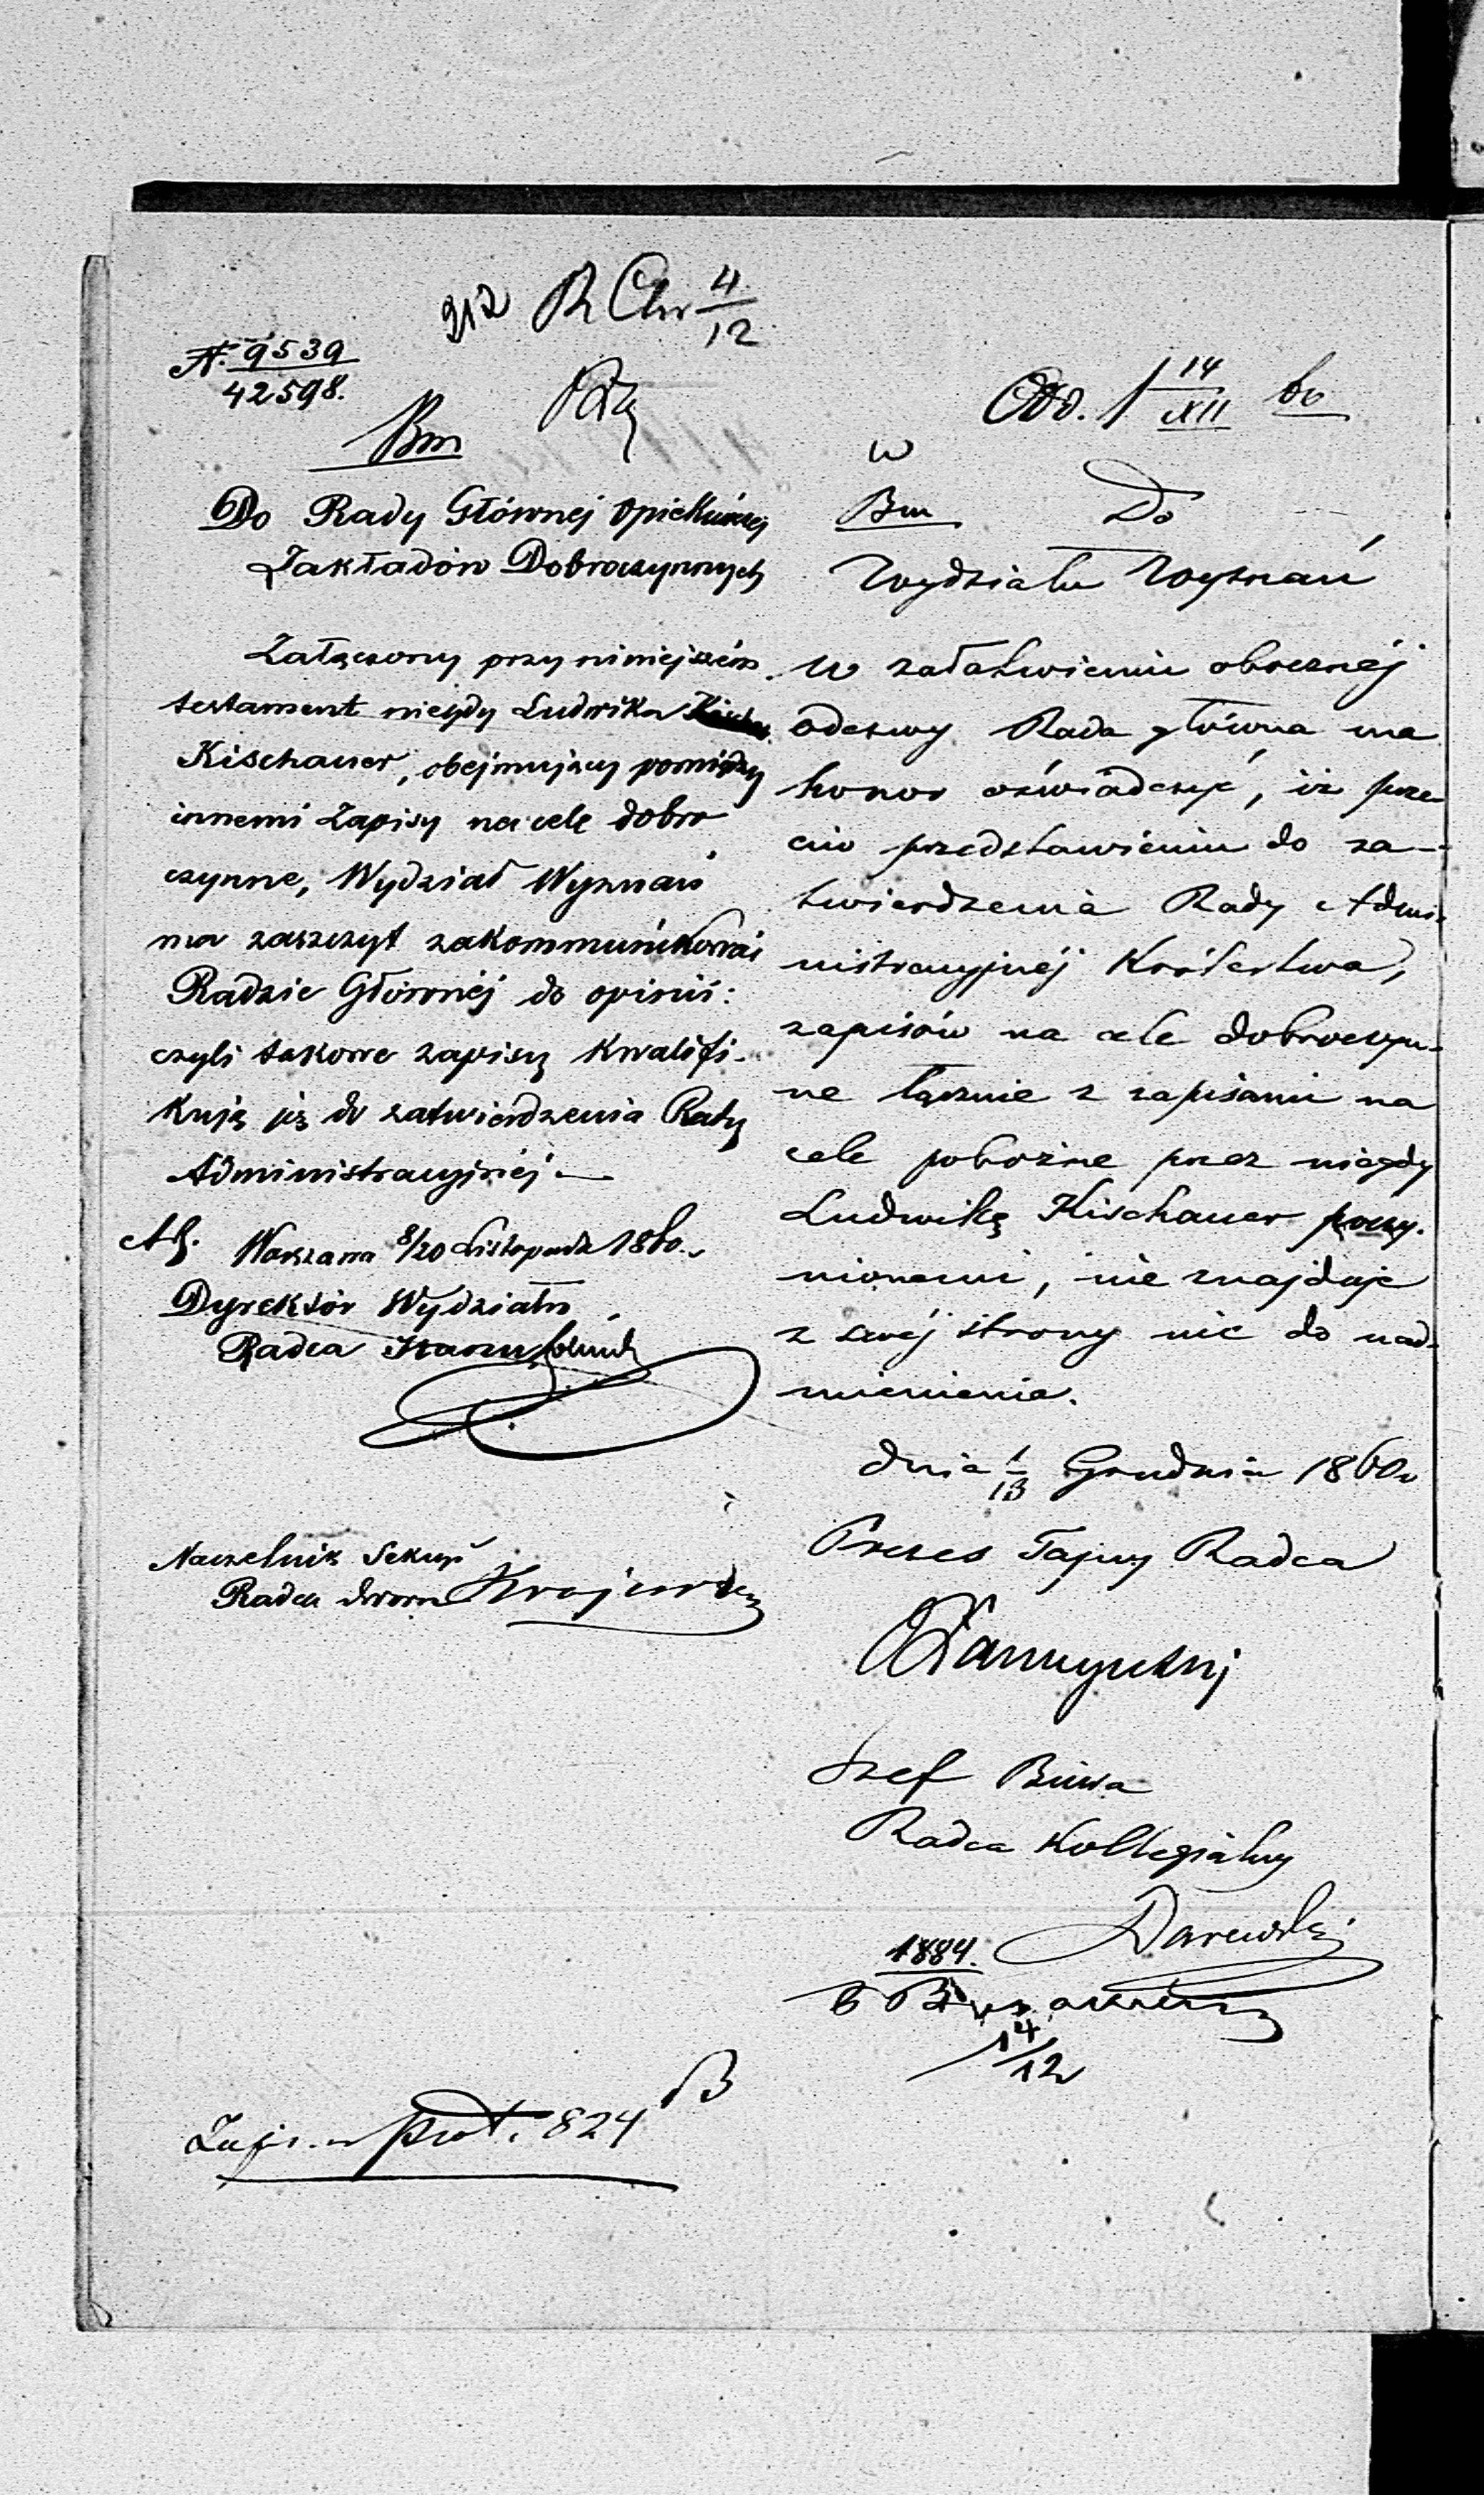 212 R Chr 4/12
N. 9539
42598.
Bm
Do Rady Głównej Opiekuńczej
Zakładów Dobroczynnych
Załączony przy niniejszém
testament niegdy Ludwika
Kischauer, obejmujący pomiędzy
innemi Zapisy na cele dobro
czynne, Wydział Wyznań
ma zaszczyt zakommunikować
Radzie Głównéj do opinii:
czyli takowe zapisy kwalifi-
kują się do zatwierdzenia Rady
Administracyjnéj —
Warszawa 8/20 Listopada 1860.
Dyrektór Wydziału
Radca Stanu
Naczelnik Sekcyi
Radca dworu Krajewski
Zapis. w prot. 824
B
Odd. 14/XII 60
w
Bm Do
Wydziału Wyznań
W załatwieniu obocznéj
odezwy Rada główna ma
honor oświadczyć, iż prze
ciw przedstawieniu do za-
twierdzenia Rady Admi-
nistracyjnéj Królestwa,
zapisów na cele dobroczyn-
ne łącznie z zapisami na
cele pobożne przez niegdy
Ludwikę Kischauer poczy-
nionemi, nie znajduje
z swéj strony nic do nad-
mienienia.
dnia 1/13 Grudnia 1860 r
Prezes Tajny Radca
Szef Biura
Radca Kollegialny
Darewski
1884.
14/12